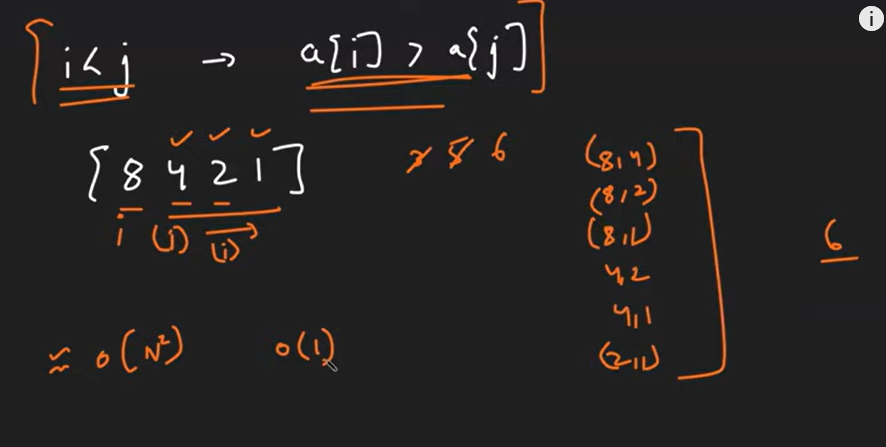 i < j → a[i] > a[j]
[8 4 2 1]
i (j) (i)
3 5 6
(8,4)
(8,2)
(8,1)
4,2
4,1
(2,1)
6
≈ O(N²) O(1)